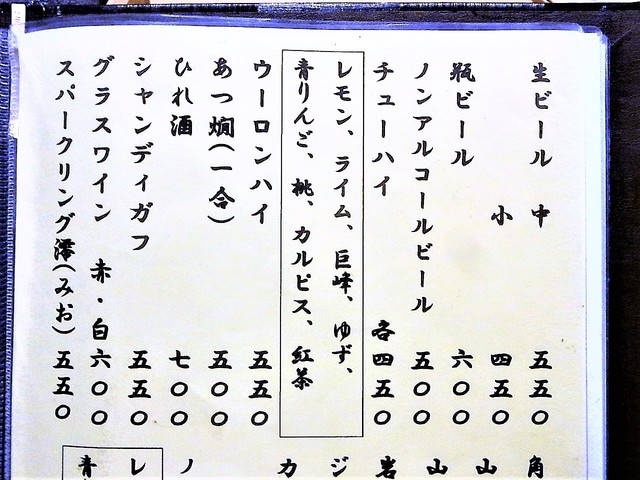 生ビール 中 五五〇
小 四五〇
瓶ビール 六〇〇
ノンアルコールビール 五〇〇
チューハイ 各四五〇
レモン、ライム、巨峰、ゆず、
青りんご、桃、カルピス、紅茶
ウーロンハイ 五五〇
あつ燗(一合) 五〇〇
ひれ酒 七〇〇
シャンディガフ 五五〇
グラスワイン 赤・白 六〇〇
スパークリング澪(みお) 五五〇
角
山
山
岩
ジ
カ
ノ
レ
青